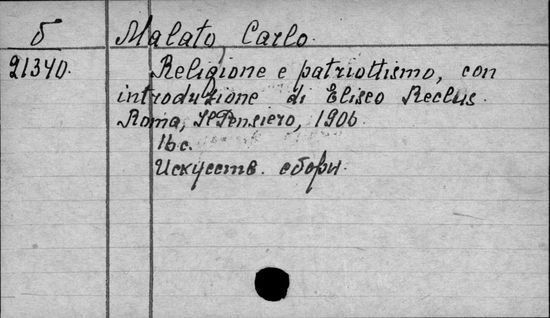 б Malato, Carlo.
21340. Religione e patriottismo, con
introduzione di Eliseo Reclus.
Roma, Il Pensiero, 1906
16 с.
Искусств. сборн.